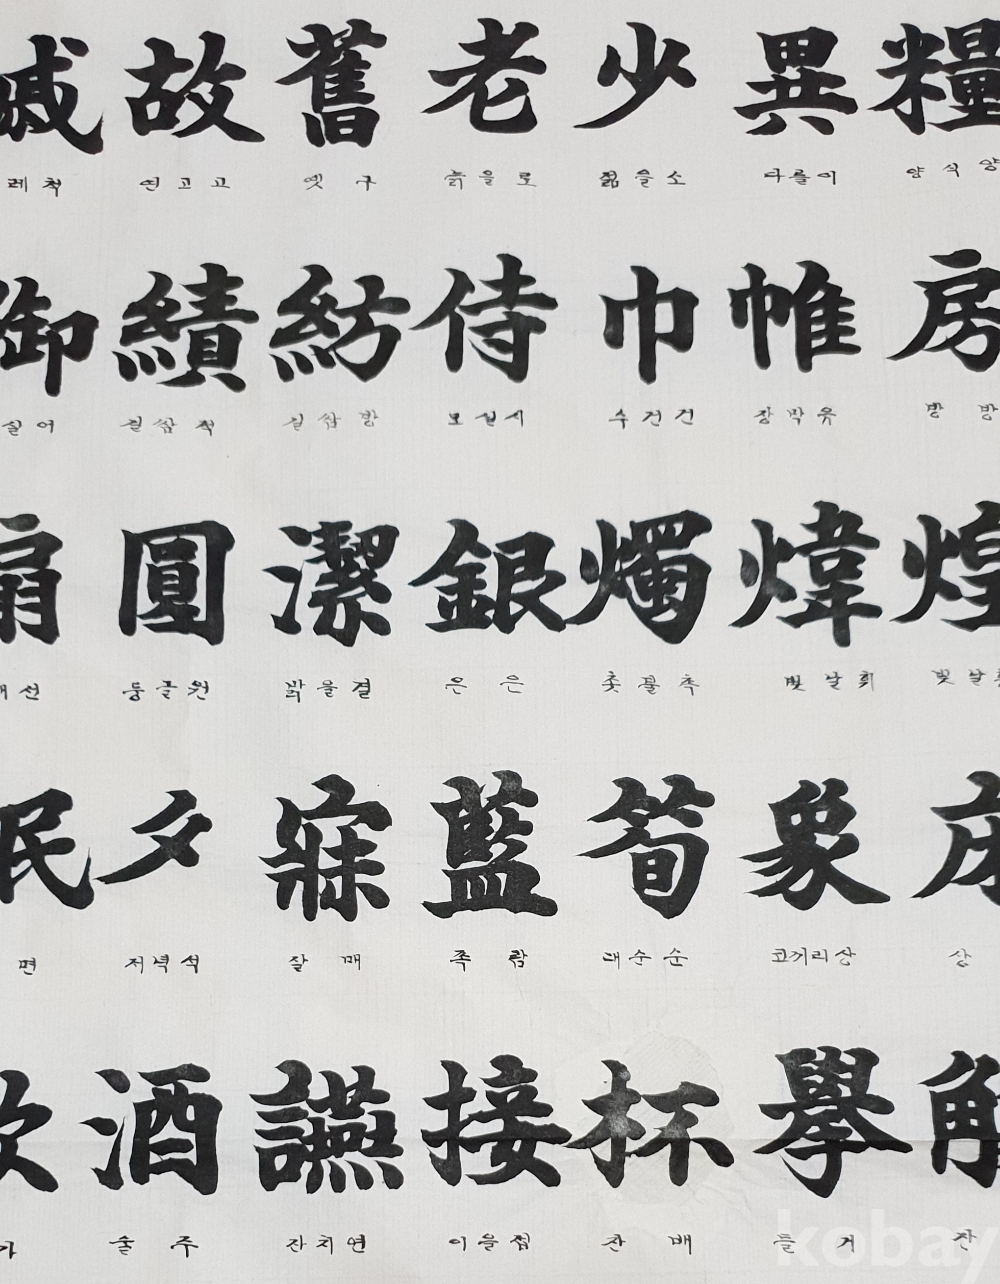 戚 故 舊 老 少 異 糧
레 척 연고 고 옛 구 늙을 로 젊을 소 다를 이 양식 양
御 績 紡 侍 巾 帷 房
실 어 길쌈 적 길쌈 방 모실 시 수건 건 장막 유 방 방
扇 圓 潔 銀 燭 煒 煌
선 둥글 원 맑을 결 은 은 촛불 촉 빛날 휘 빛날
眠 夕 寐 藍 筍 象 床
면 저녁 석 잘 매 쪽 람 대순 순 코끼리 상 상
歌 酒 讌 接 杯 擧 觴
가 술 주 잔치 연 이을 접 잔 배 들 거 잔
kobay